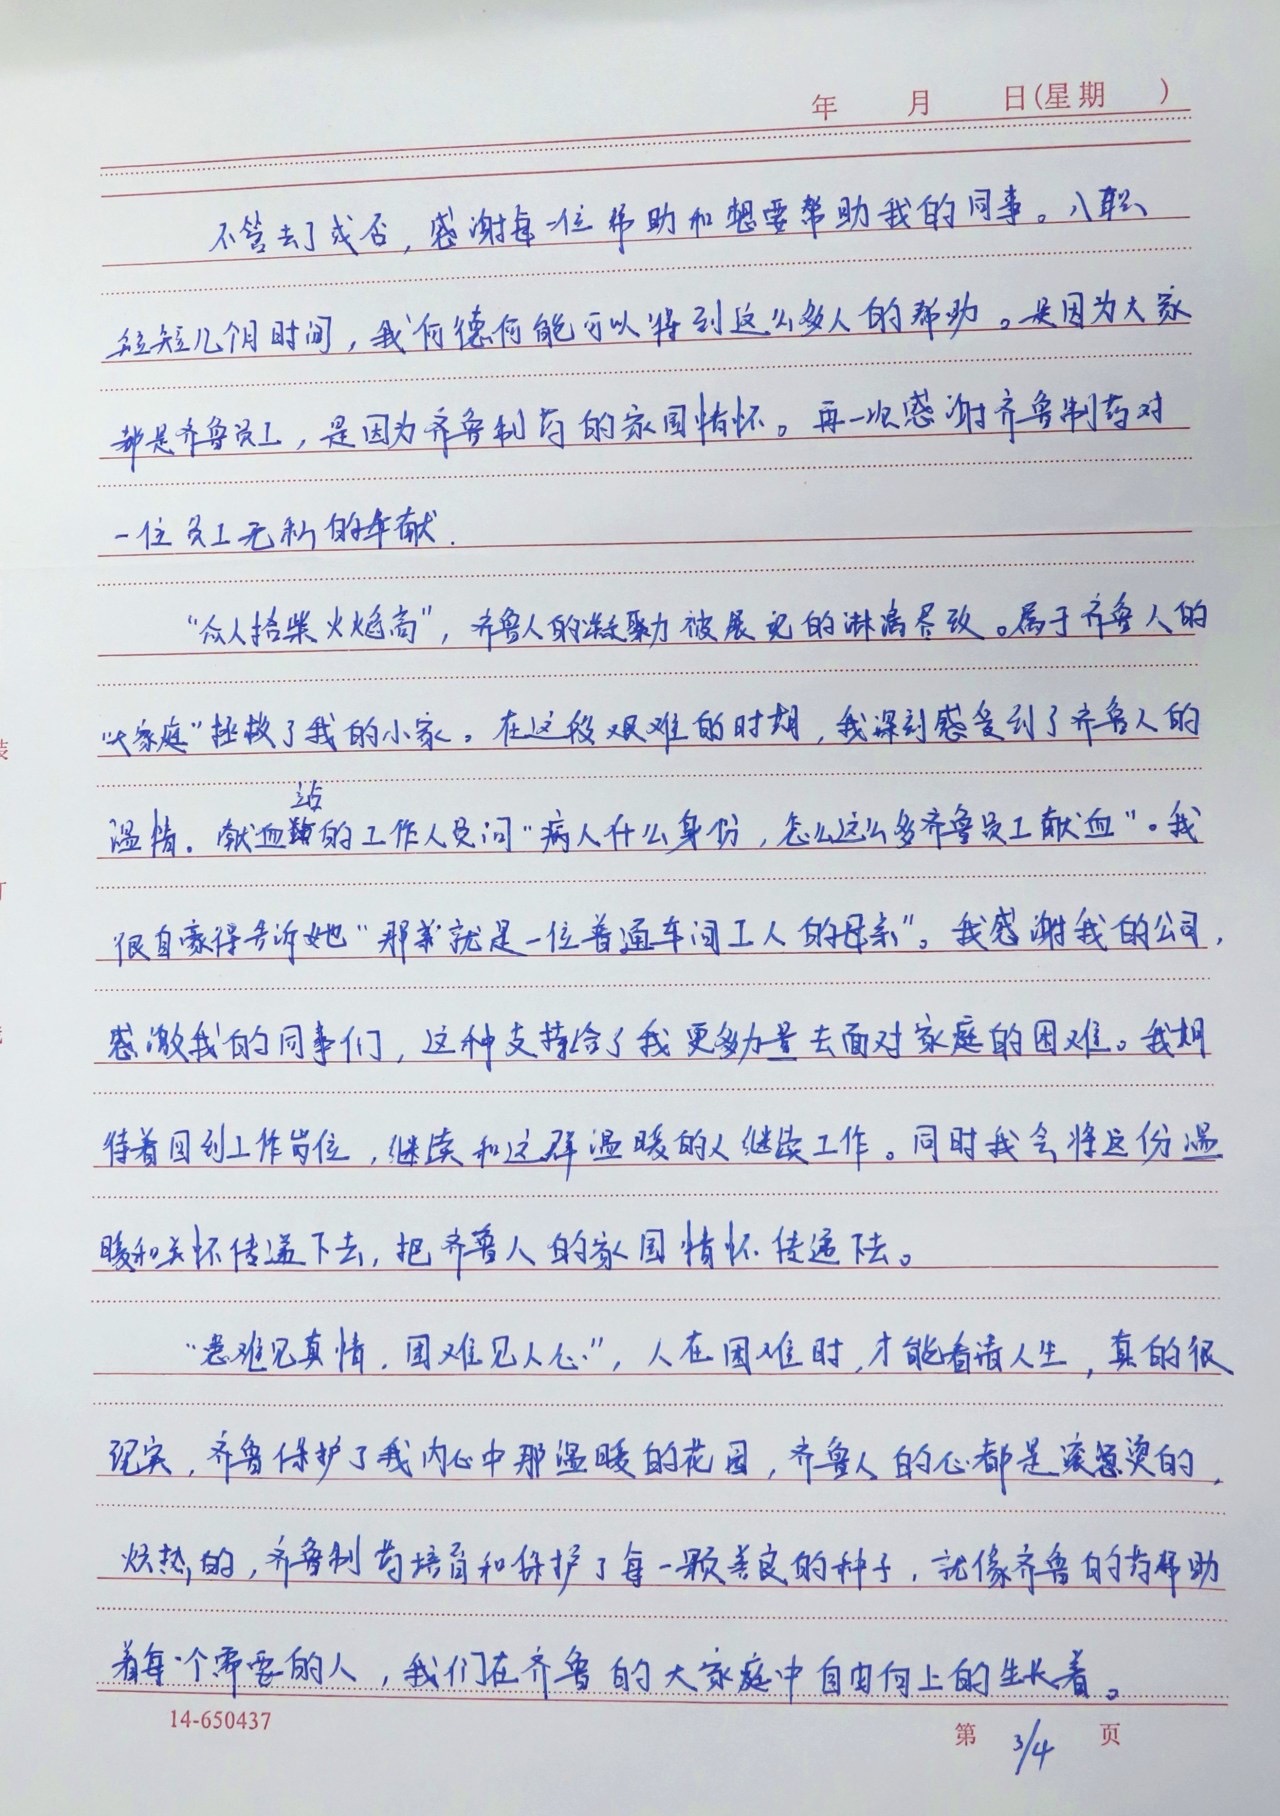 年 月 日(星期 )
不管去了或否，感谢每一位帮助和想要帮助我的同事。入职
短短几个月时间，我何德何能可以得到这么多人的帮助。是因为大家
都是齐鲁员工，是因为齐鲁制药的家国情怀。再一次感谢齐鲁制药对
一位员工无私的奉献.
“众人拾柴火焰高”，齐鲁人的凝聚力被展现的淋漓尽致。属于齐鲁人的
“大家庭”拯救了我的小家。在这段艰难的时期，我深刻感受到了齐鲁人的
温情。献血站的工作人员问“病人什么身份，怎么这么多齐鲁员工献血”。我
很自豪得告诉她“那就是一位普通车间工人的母亲”。我感谢我的公司，
感激我的同事们，这种支持给了我更多力量去面对家庭的困难。我期
待着回到工作岗位，继续和这群温暖的人继续工作。同时我会将这份温
暖和关怀传递下去，把齐鲁人的家国情怀传递下去。
“患难见真情，困难见人心”，人在困难时，才能看清人生，真的很
现实，齐鲁保护了我内心中那温暖的花园，齐鲁人的心都是滚烫的，
炽热的，齐鲁制药培育和保护了每一颗善良的种子，就像齐鲁的药帮助
着每一个需要的人，我们在齐鲁的大家庭中自由向上的生长着。
14-650437
第 3/4 页